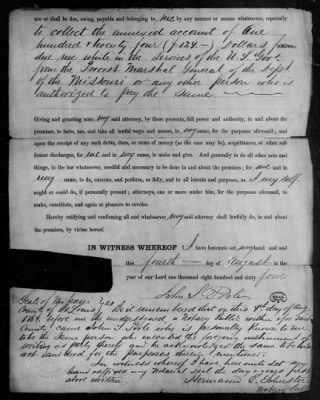 are or shall be due, owing, payable and belonging to me by any manner or means whatsoever, especially
to collect the annexed account of One
hundred & twenty four ($124.—) Dollars from
due me while in the services of the U.S. Gov't.
from the Provost Marshal General of the Dept
of the Missouri or any other person who is
authorized to pay the same
Giving and granting unto my said attorney, by these presents, full power and authority, in and about the
premises, to have, use, and take all lawful ways and means, in my name, for the purposes aforesaid; and
upon the receipt of any such debts, dues, or sums of money (as the case may be), acquittances, or other suf-
ficient discharges, for me and in my name, to make and give. And generally to do all other acts and
things, in the law whatsoever, needful and necessary to be done in and about the premises; for me and in
my name, to do, execute, and perform, as fully, and to all intents and purposes, as I my self
might or could do, if personally present; attorneys, one or more under him, for the purposes aforesaid, to
make, constitute, and again at pleasure to revoke.
Hereby ratifying and confirming all and whatsoever my said attorney shall lawfully do, in and about
the premises, by virtue hereof.
IN WITNESS WHEREOF I have hereunto set my hand and seal
this fourth day of August in the
year of our Lord one thousand eight hundred and sixty four
John S. Poole
State of Missouri
County of St Louis Be it remembered that on this day of Aug
1864 before me the undersigned a Notary public within & for said
County came John S. Poole who is personally known to me
to be the same person who executed the foregoing instrument of
writing as party thereto and he acknowledged the same to be his
act and deed for the purposes therein mentioned.
In witness whereof I have hereunto set my
hand & affixed my Notarial seal the day & year first
above written. Hermann C.
Notary Public